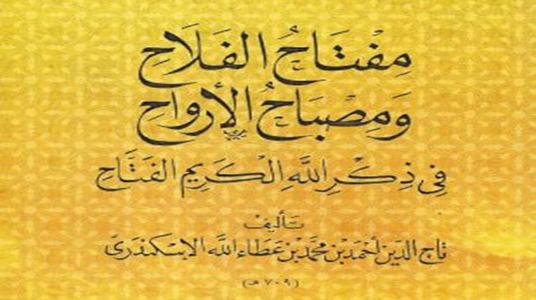 مِفْتَاحُ الفَلَاحِ
وَمِصْبَاحُ الأَرْوَاحِ
فِي ذِكْرِ اللهِ الْكَرِيمِ الفَتَّاحِ
تأليف
تاج الدين أحمد بن محمد بن عطاء الله الإسكندري
(٧٠٩ هـ)